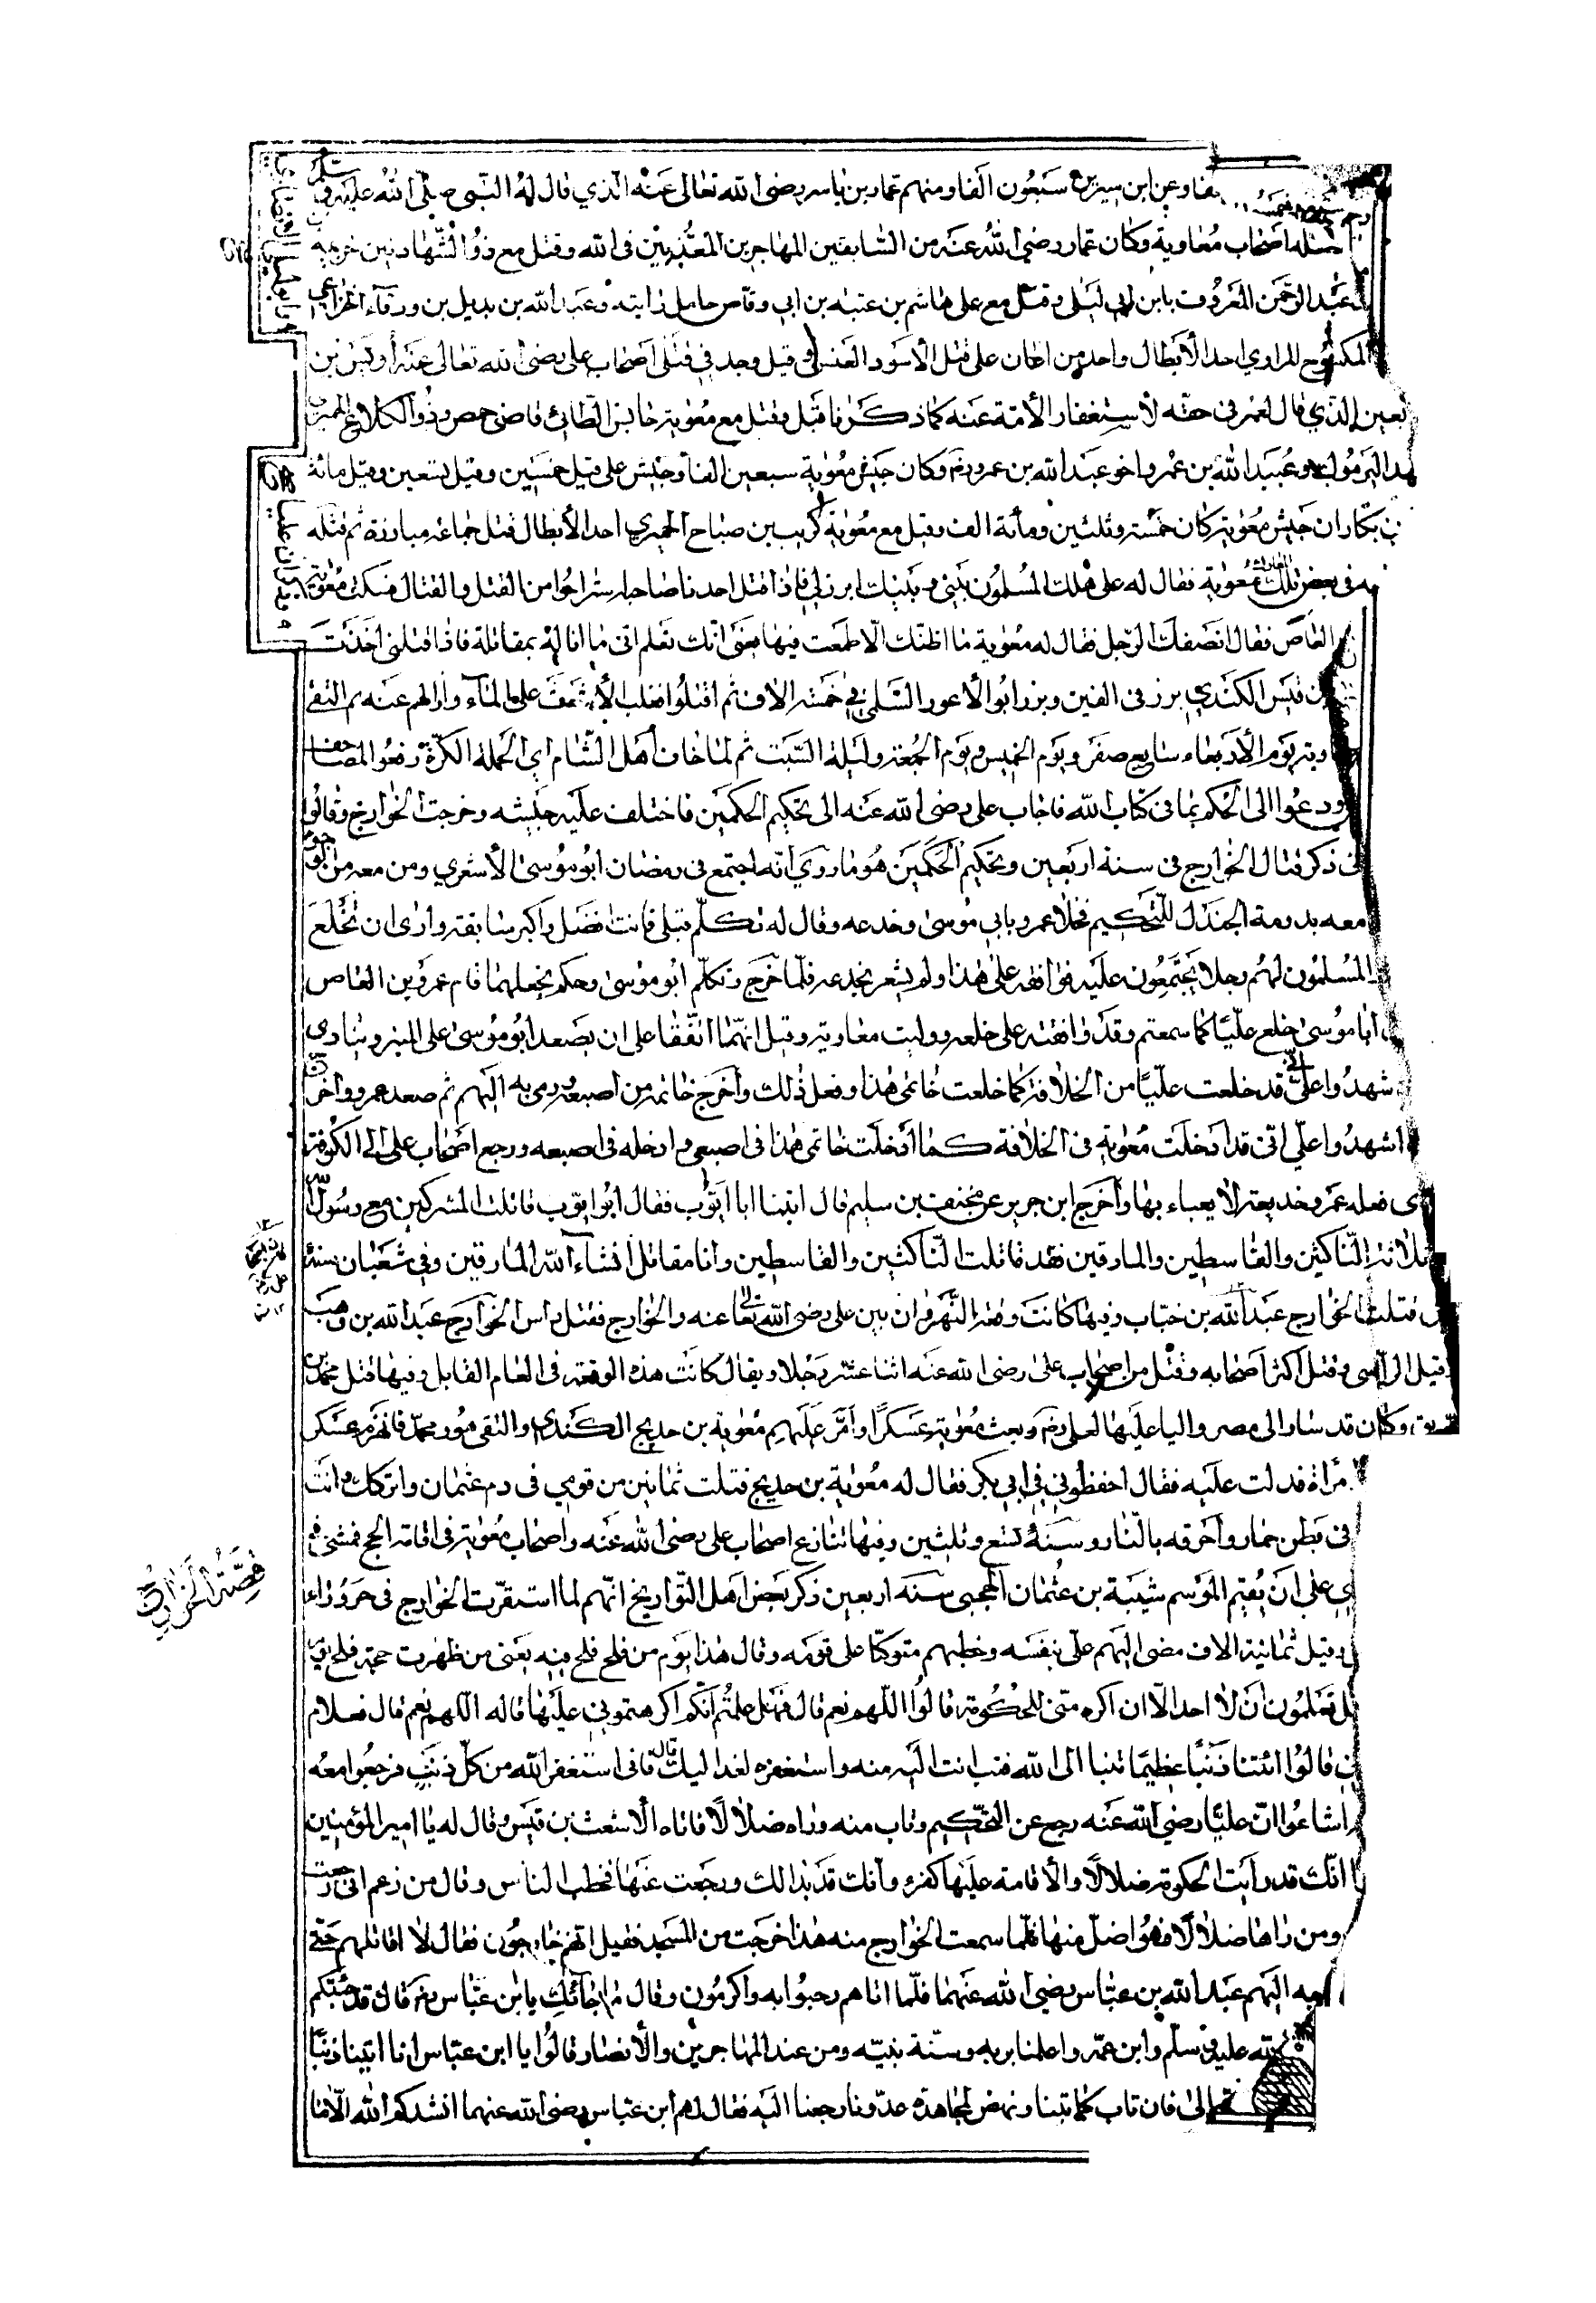 الفا وعن ابن سيرين سبعون الفا ومنهم عمار بن ياسر رضى الله تعالى عنه الذي قال له النبى صلى الله عليه وسلم
اصحاب معاوية وكان عمار رضي الله عنه من السابقين المهاجرين المعذبين فى الله وقتل مع ذو الشهادتين خزيمة
عبد الرحمن المعروف بابن ابي ليلى وقتل مع على هاشم بن عتبة بن ابي وقاص حامل رايته وعبد الله بن بديل بن ورقاء الخزاعي
المكشوح المرادي احد الأبطال واحد من اعان على قتل الأسود العنسى وقيل وجد في قتلى اصحاب على رضى الله تعالى عنه أويس بن
الذي قال لعمر فى حقه لاستغفار الأمة عنه كما ذكرنا قبل وقتل مع معوية حابس الطائي قاضى حمص وذو الكلاع الحميرى
وعبيد الله بن عمر واخو عبد الله بن عمر وكان جيش معوية سبعين الفا وجيش على قيل خمسين وقيل تسعين وقيل مائة
بن بكار ان جيش معوية كان خمسة وثلثين ومأة الف وقتل مع معوية كريب بن صباح الحميري احد الأبطال قتل جماعة مبارزة ثم قتله
فى بعض تلك معوية فقال له على هلك المسلمون بينى وبينك ابرز لي فاذا قتل احدنا صاحبه استراحوا من القتل والقتال فسكت معوية
العاص فقال انصفك الرجل فقال له معوية ما اظنك الا طمعت فيها يعنى انك تعلم انى ما انا له بمقاتلة فاذا قتلنى اخذت
بن قيس الكندي برز فى الفين وبرز ابو الأعور السلمي في خمسة الاف ثم اقتلوا فغلب الأشعث على الماء وازالهم عنه ثم التقى
يوم الأربعاء سابع صفر ويوم الخميس ويوم الجمعة وليلة السبت ثم لما خاف أهل الشام اي الحملة الكرة رفعوا المصاحف
ودعوا الى الحكم بما فى كتاب الله فاجاب على رضى الله عنه الى تحكيم الحكمين فاختلف عليه جيشه وخرجت الخوارج وقالوا
فى ذكر قتال الخوارج فى سنة اربعين وتحكيم الحكمين هو ما روي انه اجتمع فى رمضان ابو موسى الأشعري ومن معه من
معه بدومة الجندل للتحكيم فخلا عمرو بابي موسى وخدعه وقال له تكلم قبلى فانت افضل واكبر سابقة وارى ان تخلع
المسلمون لهم رجلا يجتمعون عليه فوافقه على هذا ولم يشعر بخدعه فلما خرج وتكلم ابو موسى وحكم بخلعهما قام عمرو بن العاص
ابا موسى خلع عليا كما سمعتم وقد وافقته على خلعه ووليت معاوية وقيل انهما اتفقا على ان يصعد ابو موسى على المنبر وينادى
شهدوا على انى قد خلعت عليا من الخلافة كما خلعت خاتمى هذا وفعل ذلك وأخرج خاتمه من اصبعه ورمى به اليهم ثم صعد عمرو واخرج
اشهدوا علي انى قد ادخلت معوية فى الخلافة كما ادخلت خاتمى هذا فى اصبعى وادخله فى اصبعه ورجع اصحاب على الى الكوفة
فعله عمرو خديعة لا يعباء بها وأخرج ابن جرير عن مخنف بن سليم قال اتينا ابا ايوب فقال ابو ايوب قاتلت المشركين مع رسول
ثلاثة الناكثين والقاسطين والمارقين فقد قاتلت الناكثين والقاسطين وانا مقاتل انشاء الله المارقين وفي شعبان سنة
قتلت الخوارج عبد الله بن خباب وفيها كانت وقعة النهروان بين على رضى الله تعالى عنه والخوارج فقتل راس الخوارج عبد الله بن وهب
وقيل الراسبى وقتل أكثر أصحابه وقتل من اصحاب على رضى الله عنه اثنا عشر رجلا ويقال كانت هذه الوقعة فى العام القابل وفيها قتل محمد بن
وكان قد سار الى مصر واليا عليها لعلى وبعث معوية عسكرا وأمر عليهم معوية بن حديج الكندي والتقى هو ومحمد فانهزم عسكر
مرأة فدلت عليه فقال احفظوني في ابي بكر فقال له معوية بن حديج قتلت ثمانين من قومي فى دم عثمان واتركك وانت
فى بطن حمار واحرقه بالنار وسنة تسع وثلثين وفيها تنازع اصحاب على رضى الله عنه واصحاب معوية فى اقامة الحج فمشى في
على أن يقيم الموسم شيبة بن عثمان الحجبى سنة اربعين ذكر بعض اهل التواريخ انهم لما استقرت الخوارج فى حروراء
وقيل ثمانية الاف مضى اليهم على بنفسه وخطبهم متوكا على قوسه وقال هذا يوم من فلح فلح فيه يعنى من ظهرت حجة فلح
تعلمون أن لا احد الا ان اكره منى للحكومة قالوا اللهم نعم قال فهل علمتم انكم اكرهتمونى عليها قالوا اللهم نعم قال فعلام
قالوا اتتنا ذنبا عظيما تبنا الى الله فتب انت اليه منه واستغفره لغدا اليك قال فانى استغفر الله من كل ذنب فرجعوا معه
اشاعوا ان عليا رضي الله عنه رجع عن التحكيم وتاب منه وراه ضلالا فاتاه الاشعث بن قيس وقال له يا امير المؤمنين
انك قد رايت الحكومة ضلالا والأقامة عليها كفر وأنك قد بدالك ورجعت عنها فخطب الناس وقال من زعم انى رجعت
ومن راها ضلالا فهو اضل منها فلما سمعت الخوارج منه هذا خرجت من المسجد فقيل انهم خارجون فقال لا اقاتلهم حتى
اليهم عبد الله بن عباس رضي الله عنهما فلما اتاهم رحبوا به واكرمون وقال ما جائك يا بن عباس قال قد جئتكم
الله عليه وسلم وابن عمه واعلمنا بربه وسنة نبيه ومن عند المهاجرين والأنصار قالوا يا ابن عباس انا اتينا ذنبا
تعالى فان تاب كما تبنا ونهض لمجاهدة عدونا رجعنا اليه فقال لهم ابن عباس رضى الله عنهما انشدكم الله الا ما
قصة الخوارج